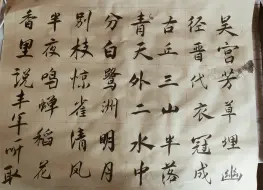 吴宫芳草埋幽
径晋代衣冠成
古丘三山半落
青天外二水中
分白鹭洲明月
别枝惊雀清风
半夜鸣蝉稻花
香里说丰年听取